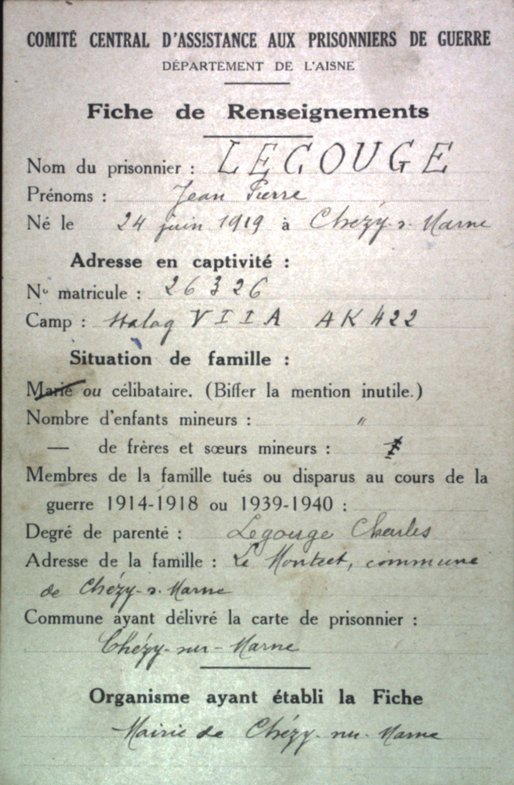 COMITÉ CENTRAL D'ASSISTANCE AUX PRISONNIERS DE GUERRE
DÉPARTEMENT DE L'AISNE
Fiche de Renseignements
Nom du prisonnier : LEGOUGE
Prénoms : Jean Pierre
Né le 24 juin 1919 à Chézy-s-Marne
Adresse en captivité :
No matricule : 26326
Camp : Stalag VIIA AK 422
Situation de famille :
Marié ou célibataire. (Biffer la mention inutile.)
Nombre d'enfants mineurs : "
— de frères et sœurs mineurs :
Membres de la famille tués ou disparus au cours de la
guerre 1914-1918 ou 1939-1940 :
Degré de parenté : Legouge Charles
Adresse de la famille : Le, commune
de Chézy-s-Marne
Commune ayant délivré la carte de prisonnier :
Chézy-sur-Marne
Organisme ayant établi la Fiche
Mairie de Chézy-sur-Marne